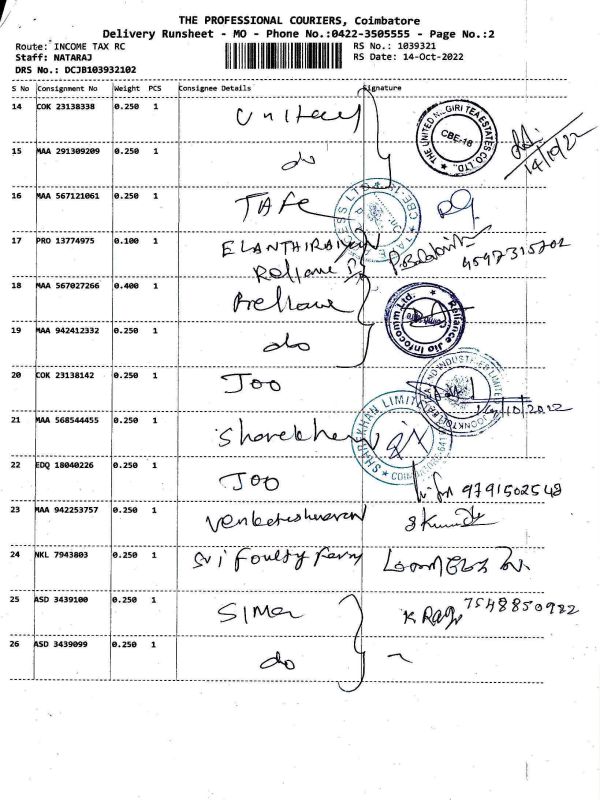 THE PROFESSIONAL COURIERS, Coimbatore
Delivery Runsheet - MO - Phone No.:0422-3505555 - Page No.:2
Route: INCOME TAX RC RS No.: 1039321
Staff: NATARAJ RS Date: 14-Oct-2022
DRS No.: DCJB103932102
S No Consignment No Weight PCS Consignee Details Signature
14 COK 23138338 0.250 1 United
THE UNITED NILGIRI TEA ESTATES CO. LTD. CBE-18
14/10/22
15 MAA 291309209 0.250 1 do
16 MAA 567121061 0.250 1 TAFE
17 PRO 13774975 0.100 1 ELANTHIRAIYAN
Reliance
18 MAA 567027266 0.400 1 Reliance
Reliance Jio Infocomm Ltd.
19 MAA 942412332 0.250 1 do
20 COK 23138142 0.250 1 Joo
21 MAA 568544455 0.250 1 Sharekhan
SHAREKHAN LIMITED
22 EDQ 18040226 0.250 1 Joo
9791502548
23 MAA 942253757 0.250 1 Venkateshwaran
24 NKL 7943803 0.250 1 Sri Foulty Farm
25 ASD 3439100 0.250 1 Simon
7548850982
26 ASD 3439099 0.250 1 do